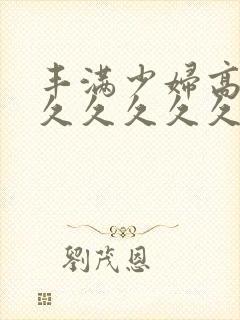 丰满少妇高
久久久久久
劉茂恩